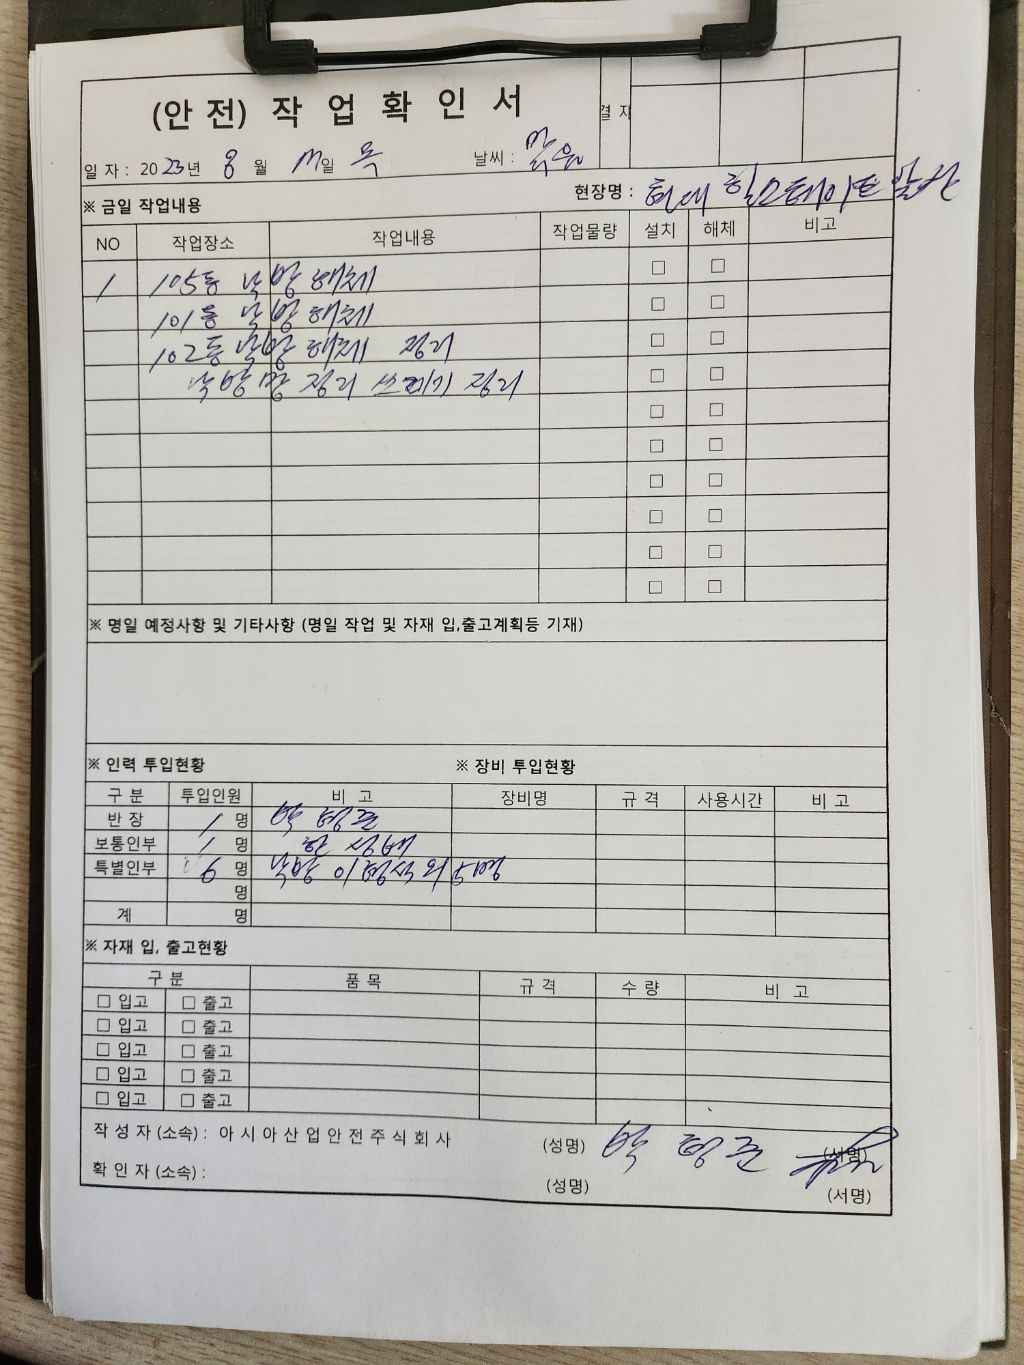 (안 전) 작 업 확 인 서
결 자
일 자 : 2023년 8월 일 목 날씨 : 맑음
현장명 : 현대 힐스테이트
※ 금일 작업내용
NO 작업장소 작업내용 작업물량 설치 해체 비고
1 105동 낙 방 해체 □ □
101동 낙 방 해체 □ □
102동 낙 방 해체 정리 □ □
낙 방 망 정리 쓰레기 정리 □ □
□ □
□ □
□ □
□ □
□ □
□ □
※ 명일 예정사항 및 기타사항 (명일 작업 및 자재 입,출고계획등 기재)
※ 인력 투입현황 ※ 장비 투입현황
구 분 투입인원 비 고 장비명 규 격 사용시간 비 고
반 장 1 명 박
보통인부 1 명 한
특별인부 6 명 낙방 이형식 외 5명
명
계 명
※ 자재 입, 출고현황
구 분 품 목 규 격 수 량 비 고
□ 입고 □ 출고
□ 입고 □ 출고
□ 입고 □ 출고
□ 입고 □ 출고
□ 입고 □ 출고
작 성 자 (소속) : 아 시 아 산 업 안 전 주 식 회 사 (성명) 박 (서명)
확 인 자 (소속) : (성명) (서명)